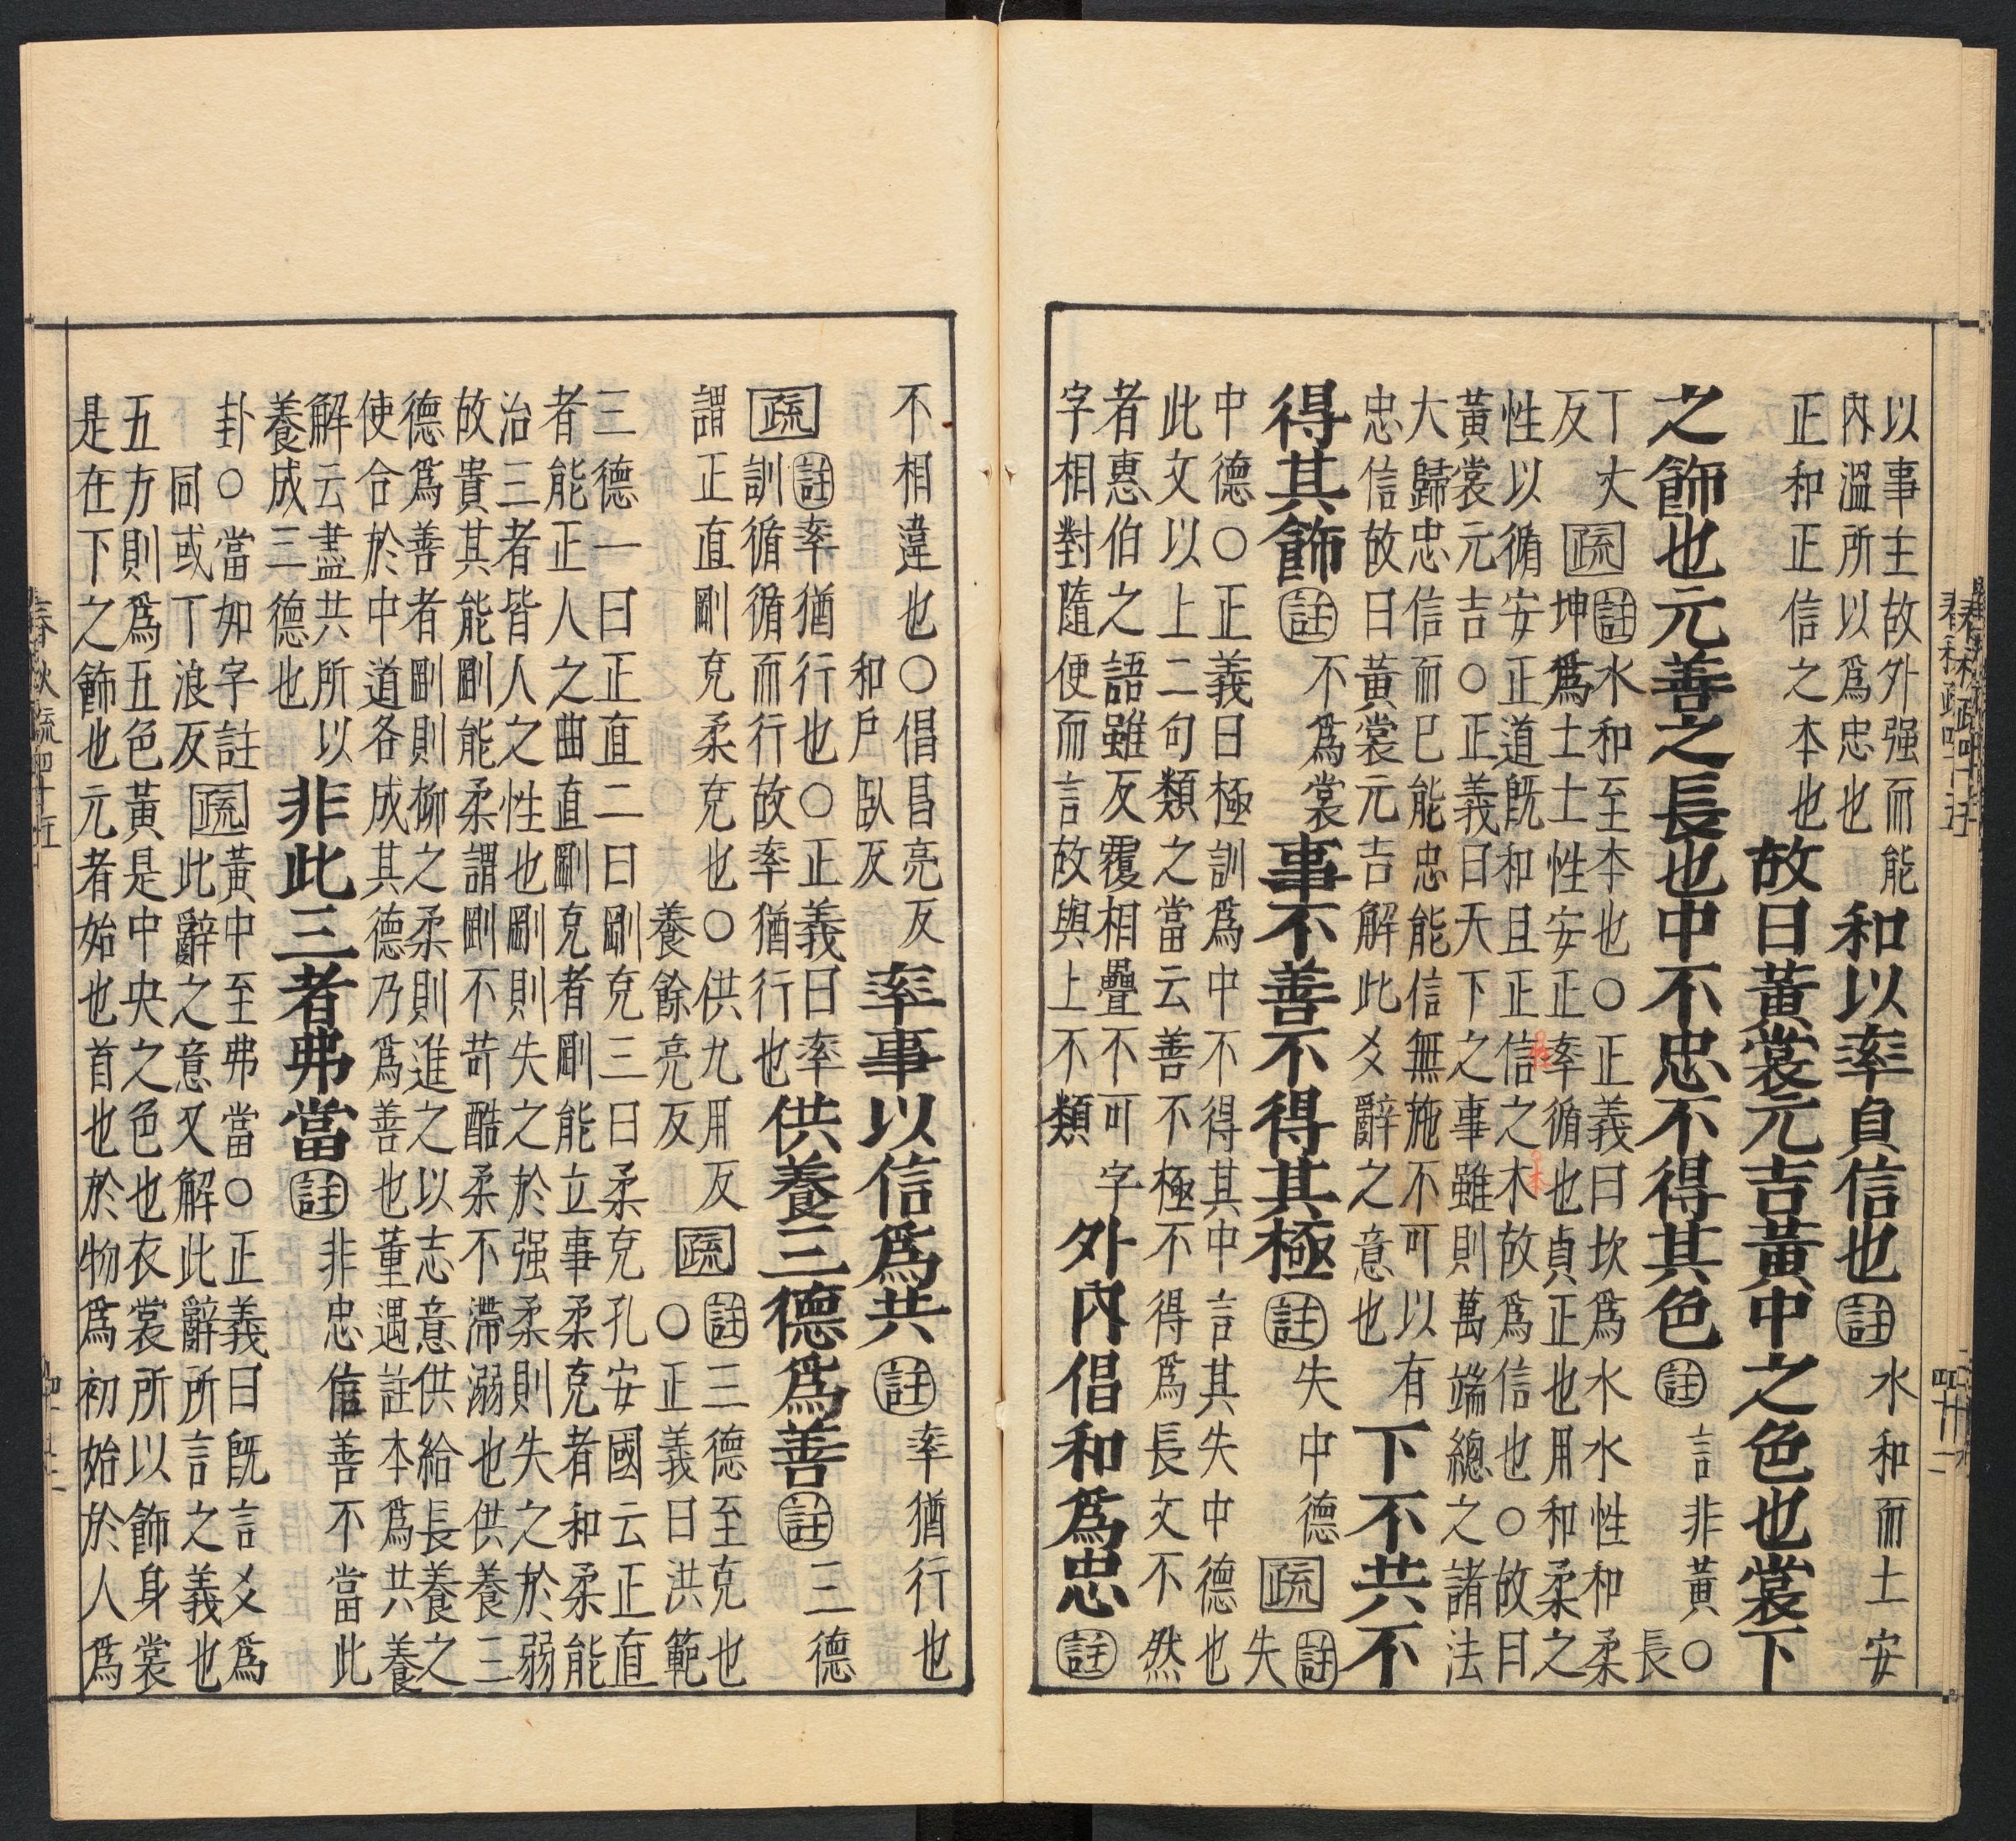 以事主故外强而能
內溫所以爲忠也
和以率貞信也註水和而土安
正和正信之本也
故曰黃裳元吉黃中之色也裳下
之飾也元善之長也中不忠不得其色註言非黃○長
丁丈
反
疏註水和至本也○正義曰坎爲水水性和柔
坤爲土土性安正率循也貞正也用和柔之
性以循安正道既和且正信之木故爲信也○故曰
黃裳元吉○正義曰天下之事雖則萬端總之諸法
大歸忠信而已能忠能信無施不可以有
忠信故曰黃裳元吉解此爻辭之意也
下不共不
得其飾註不爲裳事不善不得其極註失中德疏註失
中德○正義曰極訓爲中不得其中言其失中德也
此文以上二句類之當云善不極不得爲長文不然
者惠伯之語雖反覆相疊不可字
字相對隨便而言故與上不類
外內倡和爲忠註
不相違也○倡昌亮反
和戶臥反
率事以信爲共註率猶行也
疏註率猶行也○正義曰率
訓循循而行故率猶行也
供養三德爲善註三德
謂正直剛克柔克也○供九用反
養餘亮反
疏註三德至克也
○正義曰洪範
三德一曰正直二曰剛克三曰柔克孔安國云正直
者能正人之曲直剛克者剛能立事柔克者和柔能
治三者皆人之性也剛則失之於强柔則失之於弱
故貴其能剛能柔謂剛不苛酷柔不滯溺也供養三
德爲善者剛則抑之柔則進之以志意供給長養之
使合於中道各成其德乃爲善也董遇註本爲共養
解云盡共所以
養成三德也
非此三者弗當註非忠信善不當此
卦○當如字註
同或丁浪反
疏黃中至弗當○正義曰既言爻爲
此辭之意又解此辭所言之義也
五方則爲五色黃是中央之色也衣裳所以飾身裳
是在下之飾也元者始也首也於物爲初始於人爲
春秋疏四十五